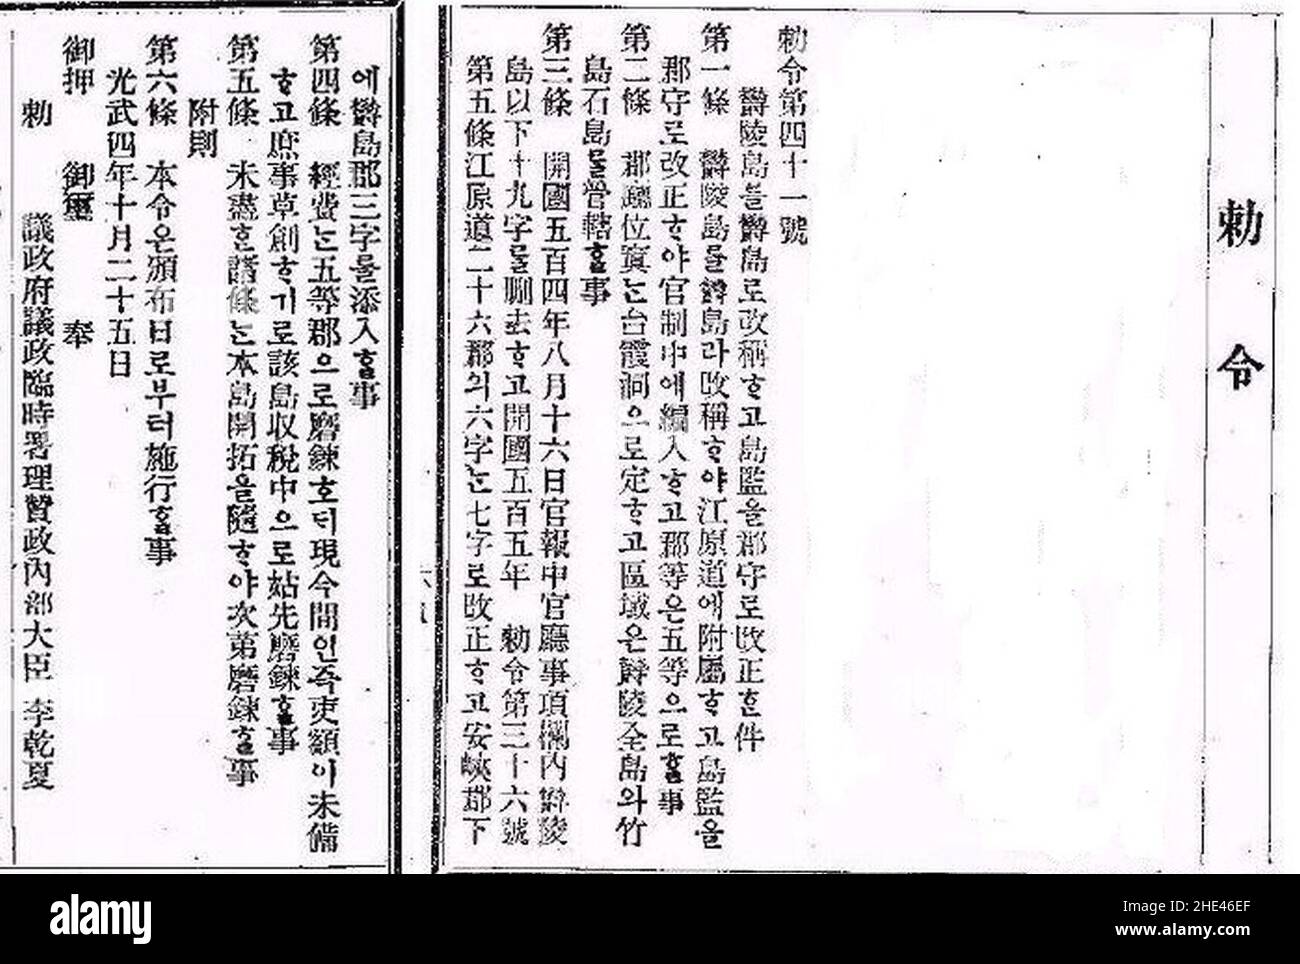 勅令
勅令第四十一號
鬱陵島를鬱島로改稱ᄒᆞ고島監을郡守로改正ᄒᆞᆫ件
第一條 鬱陵島를鬱島라改稱ᄒᆞ야江原道에附屬ᄒᆞ고島監을
郡守로改正ᄒᆞ야官制中에編入ᄒᆞ고郡等은五等으로ᄒᆞᆯ事
第二條 郡廳位寘는台霞洞으로定ᄒᆞ고區域은鬱陵全島와竹
島石島를管轄ᄒᆞᆯ事
第三條 開國五百四年八月十六日官報中官廳事項欄內鬱陵
島以下十九字를刪去ᄒᆞ고開國五百五年 勅令第三十六號
第五條江原道二十六郡의六字는七字로改正ᄒᆞ고安峽郡下
에鬱島郡三字를添入ᄒᆞᆯ事
第四條 經費는五等郡으로磨鍊호ᄃᆡ現今間인즉吏額이未備
ᄒᆞ고庶事草創ᄒᆞ기로該島收稅中으로姑先磨鍊ᄒᆞᆯ事
第五條 未盡ᄒᆞᆫ諸條는本島開拓을隨ᄒᆞ야次第磨鍊ᄒᆞᆯ事
附則
第六條 本令은頒布日로부터施行ᄒᆞᆯ事
光武四年十月二十五日
御押 御璽 奉
勅 議政府議政臨時署理贊政內部大臣 李乾夏
alamy
Image ID: 2HE46EF
www.alamy.com